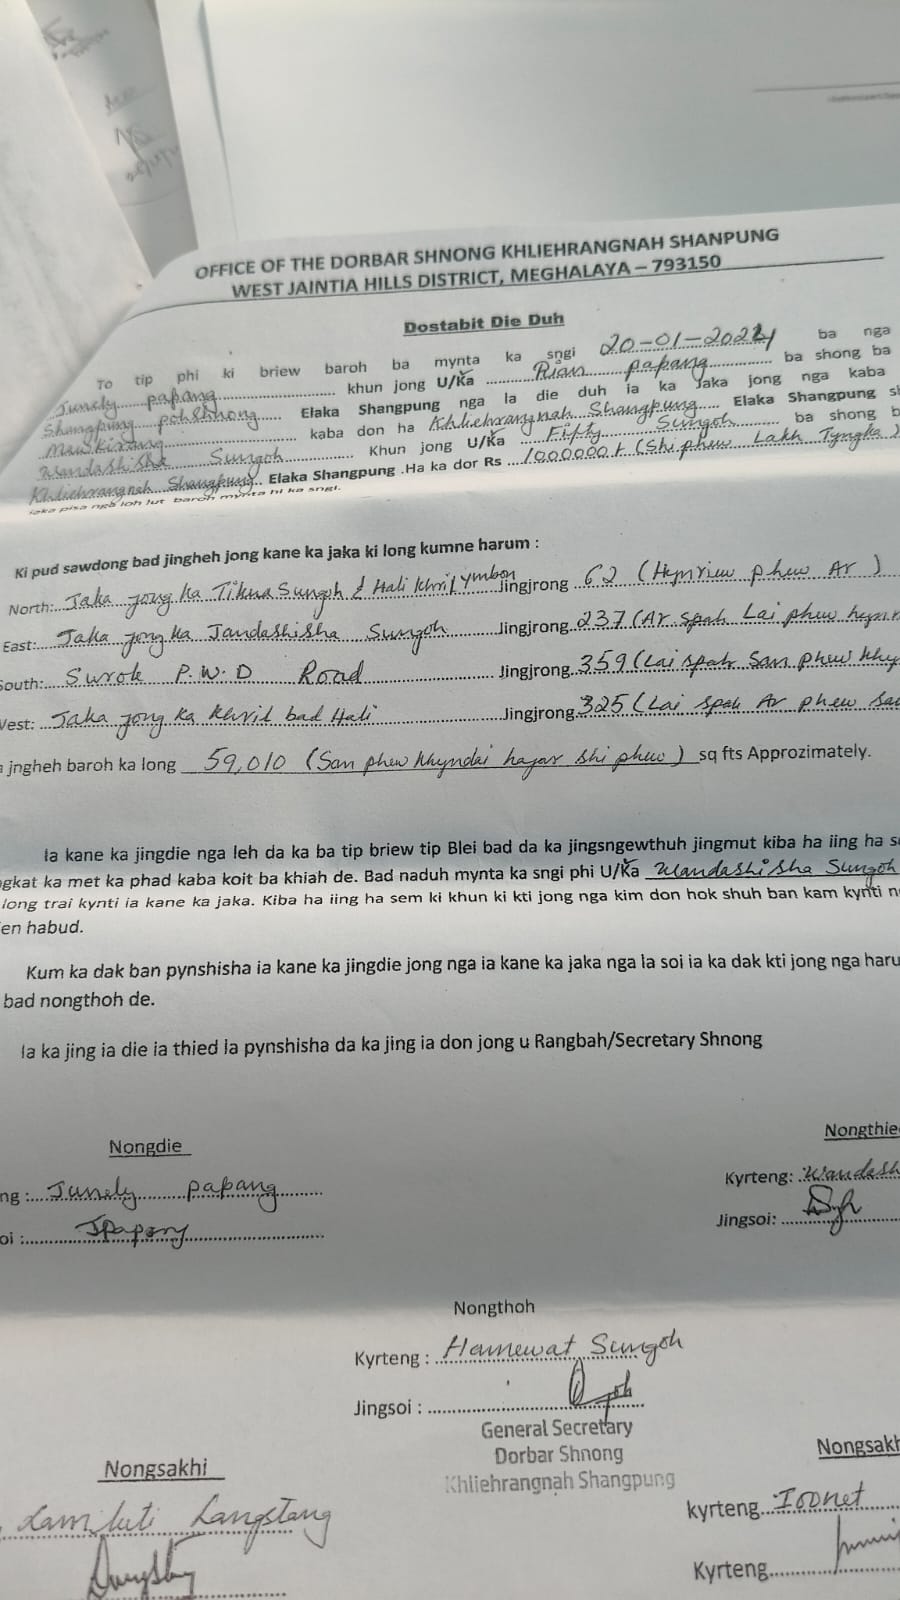 OFFICE OF THE DORBAR SHNONG KHLIEHRANGNAH SHANPUNG
WEST JAINTIA HILLS DISTRICT, MEGHALAYA – 793150
Dostabit Die Duh
To tip phi ki briew baroh ba mynta ka sngi 20-01-2024 ba nga
Junely papang khun jong U/Ka Rian papang ba shong ba
Shangpung pohshnong Elaka Shangpung nga la die duh ia ka Jaka jong nga kaba
kaba don ha Khliehrangnah Shangpung Elaka Shangpung
Wandashisha Sungoh Khun jong U/Ka Fifty Sungoh ba shong
Khliehrangnah Shangpung Elaka Shangpung .Ha ka dor Rs 1000000 (Shi phew Lakh Tyngka)
pisa nga loh lut baroh mynta hi ka sngi.
Ki pud sawdong bad jingheh jong kane ka jaka ki long kumne harum :
North: Jaka jong ka Tikua Sungoh & Hali Khri Lymbon Jingjrong 62 (Hynriew phew Ar)
East: Jaka jong ka Jandashisha Sungoh Jingjrong 237 (Ar spah Lai phew
South: Surok P.W.D Road Jingjrong 359 (Lai spah San phew
West: Jaka jong ka Khril bad Hali Jingjrong 325 (Lai spah Ar phew
jngheh baroh ka long 59,010 (San phew Khyndai hajar Shi phew) sq fts Approzimately.
Ia kane ka jingdie nga leh da ka ba tip briew tip Blei bad da ka jingsngewthuh jingmut kiba ha iing ha
ka met ka phad kaba koit ba khiah de. Bad naduh mynta ka sngi phi U/Ka Wandashisha Sungoh
long trai kynti ia kane ka jaka. Kiba ha iing ha sem ki khun ki kti jong nga kim don hok shuh ban kam kynti
habud.
Kum ka dak ban pynshisha ia kane ka jingdie jong nga ia kane ka jaka nga la soi ia ka dak kti jong nga
bad nongthoh de.
Ia ka jing ia die ia thied la pynshisha da ka jing ia don jong u Rangbah/Secretary Shnong
Nongdie
Nongthie
Junely papang
Kyrteng: Wandash
JPapang
Jingsoi:
Nongthoh
Kyrteng : Hamewat Sungoh
Jingsoi :
General Secretary
Dorbar Shnong
Khliehrangnah Shangpung
Nongsakhi
Nongsakh
Langstang
kyrteng
Kyrteng